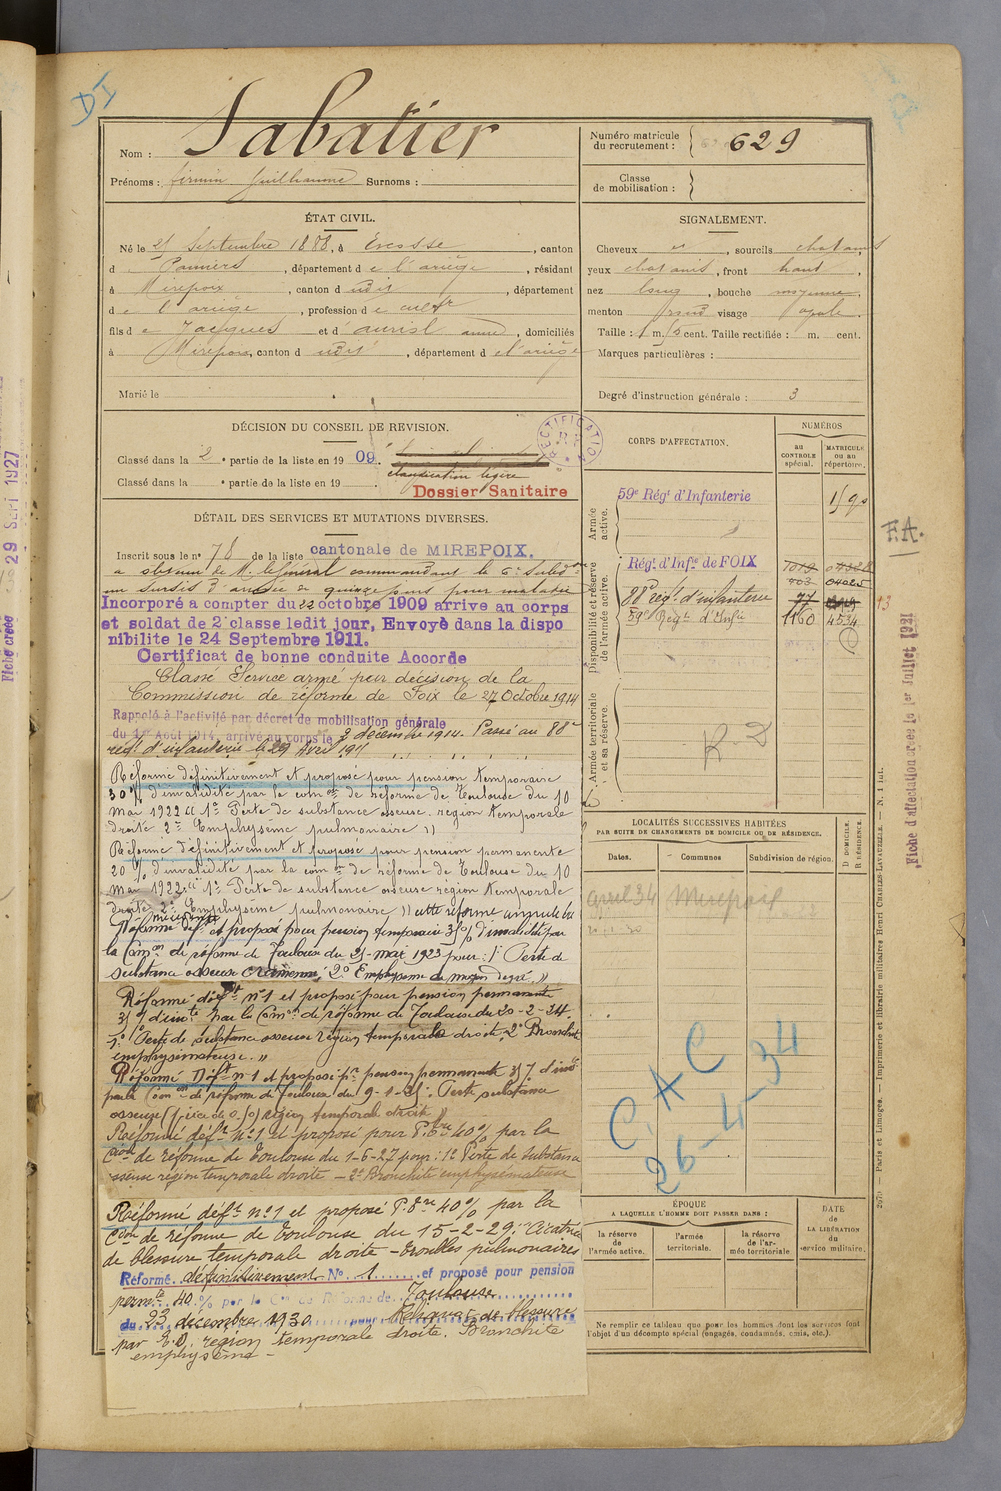 DI
Nom : Sabatier
Prénoms : firmin Guilhaume Surnoms :
Numéro matricule
du recrutement : 629
Classe
de mobilisation :
ÉTAT CIVIL.
Né le 25 Septembre 1888, à Escosse, canton
de Pamiers, département de l'ariège, résidant
à Mirepoix, canton d udit, département
de l'ariège, profession de cultr
fils de Jacques et d' , domiciliés
à Mirepoix, canton d udit, département de l'ariège
Marié le
SIGNALEMENT.
Cheveux et , sourcils chatains
yeux chatains, front haut,
nez long, bouche moyenne,
menton rond visage ovale.
Taille : 1 m. cent. Taille rectifiée : m. cent.
Marques particulières :
Degré d'instruction générale : 3
DÉCISION DU CONSEIL DE REVISION.
Classé dans la 2e partie de la liste en 1909.
Classé dans la e partie de la liste en 19
claudication légère
RECTIFICATION
Dossier Sanitaire
DÉTAIL DES SERVICES ET MUTATIONS DIVERSES.
Inscrit sous le no 78 de la liste cantonale de MIREPOIX.
a obtenu de M. le Général commandant le 6e Subdon
un sursis d' de quinze jours pour maladie
Incorporé a compter du 22 octobre 1909 arrive au corps
et soldat de 2e classe ledit jour, Envoyè dans la dispo
nibilite le 24 Septembre 1911.
Certificat de bonne conduite Accorde
Classé Service armé par décision de la
Commission de réforme de Foix le 27 Octobre 1914
Rappelé à l'activité par décret de mobilisation générale
du 1er Août 1914, arrivé au corps le 3 décembre 1914. Passé au 88e
régt d'infanterie le 29 Avril 191
Réforme définitivement et proposé pour pension temporaire
30 % d'invalidité par la com on de réforme de Toulouse du 10
mai 1922 "1° Perte de substance osseuse région temporale
droite 2° Emphysème pulmonaire"
Réforme définitivement et proposé pour pension permanente
20 % d'invalidité par la com on de réforme de Toulouse du 10
mai 1922 "1° Perte de substance osseuse région temporale
droite 2° Emphysème pulmonaire" cette réforme annulée
Réformé déf. et proposé pour pension temporaire 35 % d'invalidité par
la Com on de réforme de Toulouse du 25 mai 1923 pour : 1° Perte de
substance osseuse cranienne, 2° Emphysème de moyen degré."
Réformé déft n°1 et proposé pour pension permanente
35 % d'invté par la Com on de réforme de Toulouse du 20-2-24.
1° Perte de substance osseuse région temporale droite, 2° Bronchite
emphysémateuse."
Réformé Déft n°1 et proposé pr pension permanente 35 % d'invté
par la Com on de réforme de Toulouse du 9-1-25; Perte substance
osseuse région temporale droite
Réformé déft n°1 et proposé pour P. 40 % par la
Com de réforme de Toulouse du 1-6-27 pour : 1° Perte de substance
osseuse région temporale droite - 2° Bronchite emphysémateuse
Réformé déft n°1 et proposé P. 40 % par la
Com de réforme de Toulouse du 15-2-29 : "Cicatrice
de blessure temporale droite - troubles pulmonaires
Réformé définitivement N° 1 et proposé pour pension
permte 40 % par la Con de Réforme de Toulouse
du 23 décembre 1930 pour Reliquat de blessure
par E.O. région temporale droite. Bronchite
emphysème -
CORPS D'AFFECTATION.
NUMÉROS
au
CONTROLE
spécial.
MATRICULE
ou au
répertoire.
Armée
active.
59e Régt d'Infanterie
Disponibilité et réserve
de l'armée active.
Régt d'Infie de FOIX 1019
703 04025
88e régt d'infanterie 77
59e Régt d'Infie 1160 4534
13
Armée territoriale
et sa réserve.
LOCALITÉS SUCCESSIVES HABITÉES
PAR SUITE DE CHANGEMENTS DE DOMICILE OU DE RÉSIDENCE.
Dates.
Communes
Subdivision de région.
D DOMICILE.
R RÉSIDENCE.
avril 34 Mirepoix
C. A C
26-4-34
ÉPOQUE
A LAQUELLE L'HOMME DOIT PASSER DANS :
la réserve
de
l'armée active.
l'armée
territoriale.
la réserve
de l'ar-
mée territoriale
DATE
de
LA LIBÉRATION
du
service militaire.
Ne remplir ce tableau que pour les hommes dont les services font
l'objet d'un décompte spécial (engagés, condamnés, omis, etc.).
F.A.
Fiche d'affectation créée le 1er Juillet 1921
Paris et Limoges. — Imprimerie et librairie militaires Henri CHARLES-LAVAUZELLE. — N. 1 int.
Fiche créée 29 1927